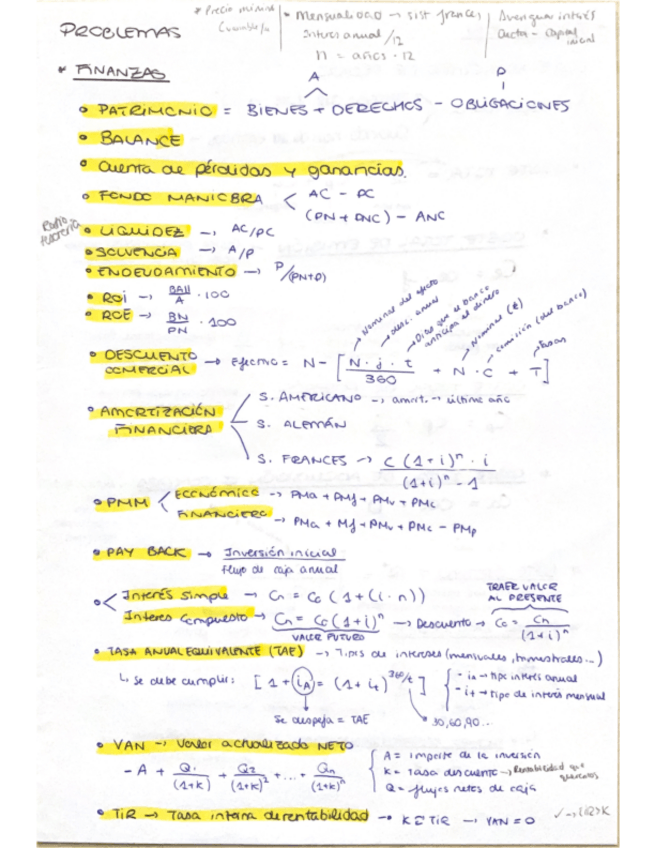 PROBLEMAS
* Precio mínimo
* Mensualidad → sist frances
Interes anual /12
n = años · 12
Averiguar interés
Cuota - Capital inicial
* FINANZAS
A P
• PATRIMONIO = BIENES + DERECHOS - OBLIGACIONES
• BALANCE
• Cuenta de pérdidas y ganancias.
• FONDO MANIOBRA < AC - PC
(PN + PNC) - ANC
Ratio tesorería
• LIQUIDEZ → AC/PC
• SOLVENCIA → A/P
• ENDEUDAMIENTO → P/(PN+P)
• Roi → BAII/A · 100
• ROE → BN/PN · 100
Nominal del efecto
desc. anual
Dias que el banco anticipa el dinero
Nominal (€)
comisión (del banco)
Tasas
• DESCUENTO COMERCIAL → Efectivo = N - [N · j · t / 360 + N · C + T]
• AMORTIZACIÓN FINANCIERA
S. AMERICANO → amort. → último año
S. ALEMÁN
S. FRANCES → C (1+i)ⁿ · i / (1+i)ⁿ - 1
• PMM < ECONÓMICO → PMa + PMf + PMv + PMc
FINANCIERO → PMa + Mf + PMv + PMc - PMp
• PAY BACK → Inversión inicial / Flujo de caja anual
TRAER VALOR AL PRESENTE
• < Interés simple → Cn = Co (1 + (i · n))
Interes Compuesto → Cn = Co (1+i)ⁿ → Descuento → Co = Cn / (1+i)ⁿ
VALOR FUTURO
• TASA ANUAL EQUIVALENTE (TAE) → Tipos de intereses (mensuales, trimestrales...)
↳ Se debe cumplir: [1 + iA = (1 + it)^360/t]
- ia → tipo interés anual
- it → tipo de interés mensual
Se despeja = TAE
30,60,90...
• VAN → Valor actualizado NETO
- A + Q1/(1+k) + Q2/(1+k)² + ... + Qn/(1+k)ⁿ
A = importe de la inversión
K = Tasa descuento → Rentabilidad que
Q = flujos netos de caja
• TiR → Tasa interna de rentabilidad → K = TIR → VAN = 0
✓ → TIR > K